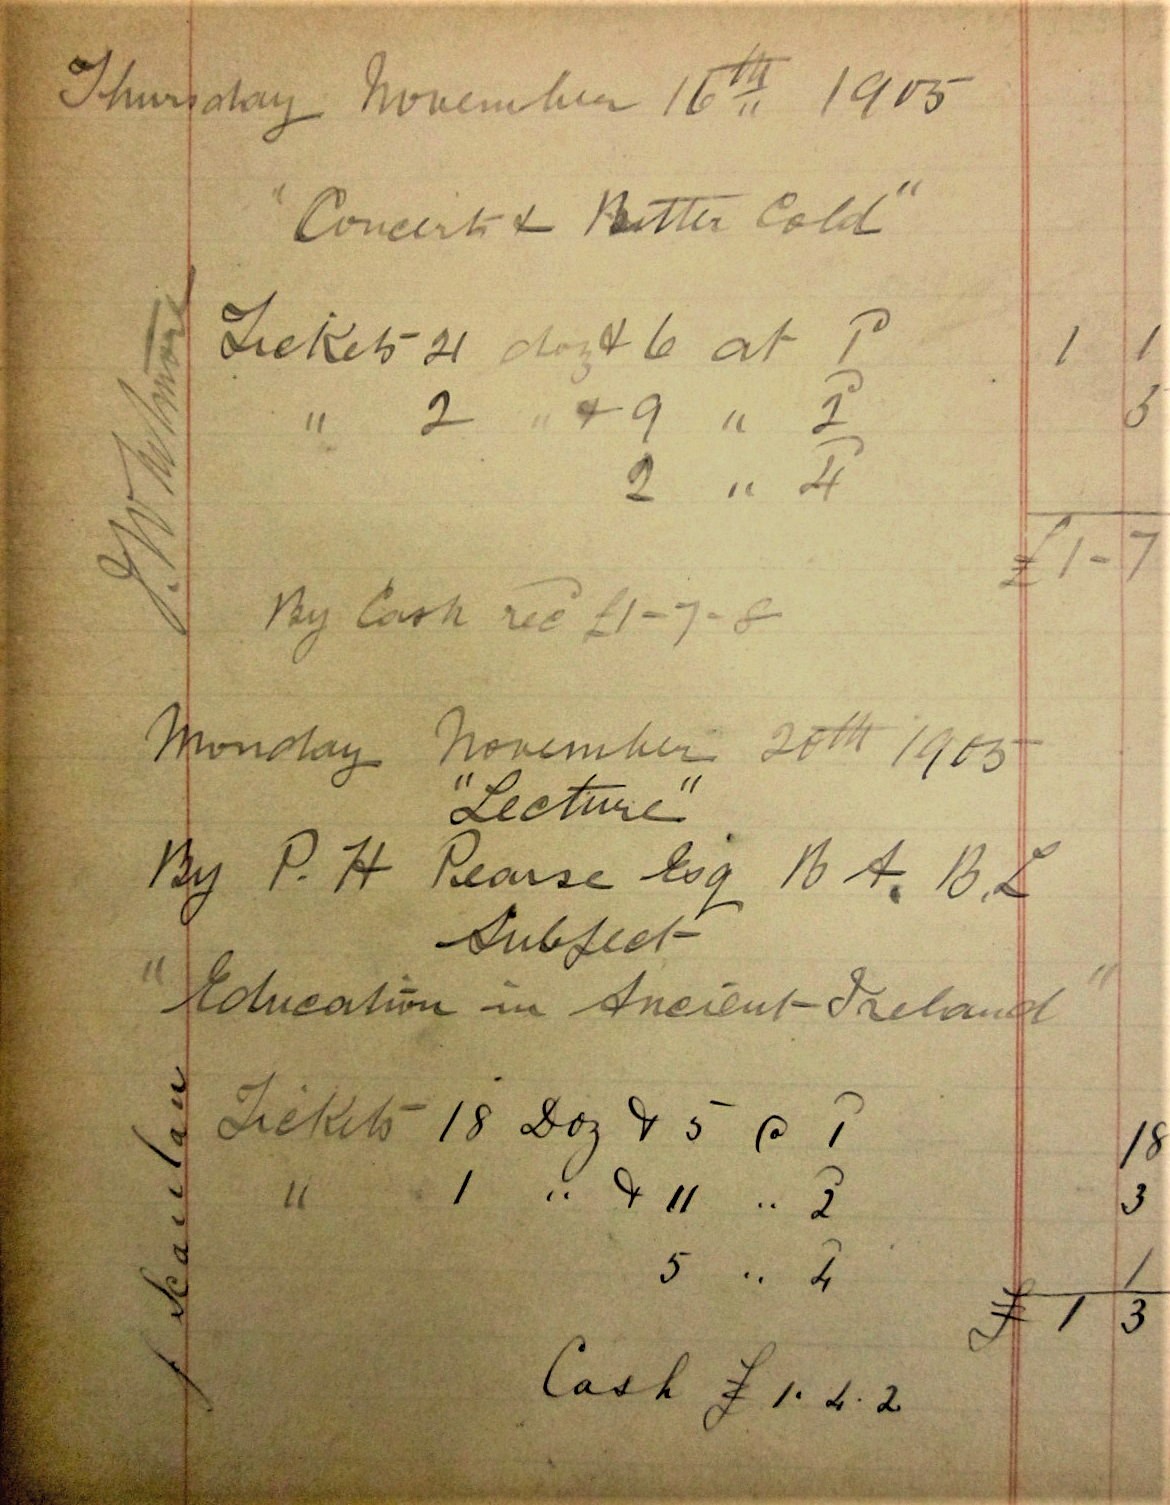 Thursday November 16th 1905
"Concert & Bitter Cold"
Tickets 21 doz & 6 at 1d 1 1
" 2 " & 9 " 2d 5
2 " 4d
£1-7
By Cash rec £1-7-8
Monday November 20th 1905
"Lecture"
By P. H Pearse Esq B A. B.L
Subject
"Education in Ancient Ireland"
Tickets 18 Doz & 5 @ 1d 18
" 1 " & 11 " 2d 3
5 " 4d 1
£ 1 3
Cash £ 1. 4. 2
J Scanlan